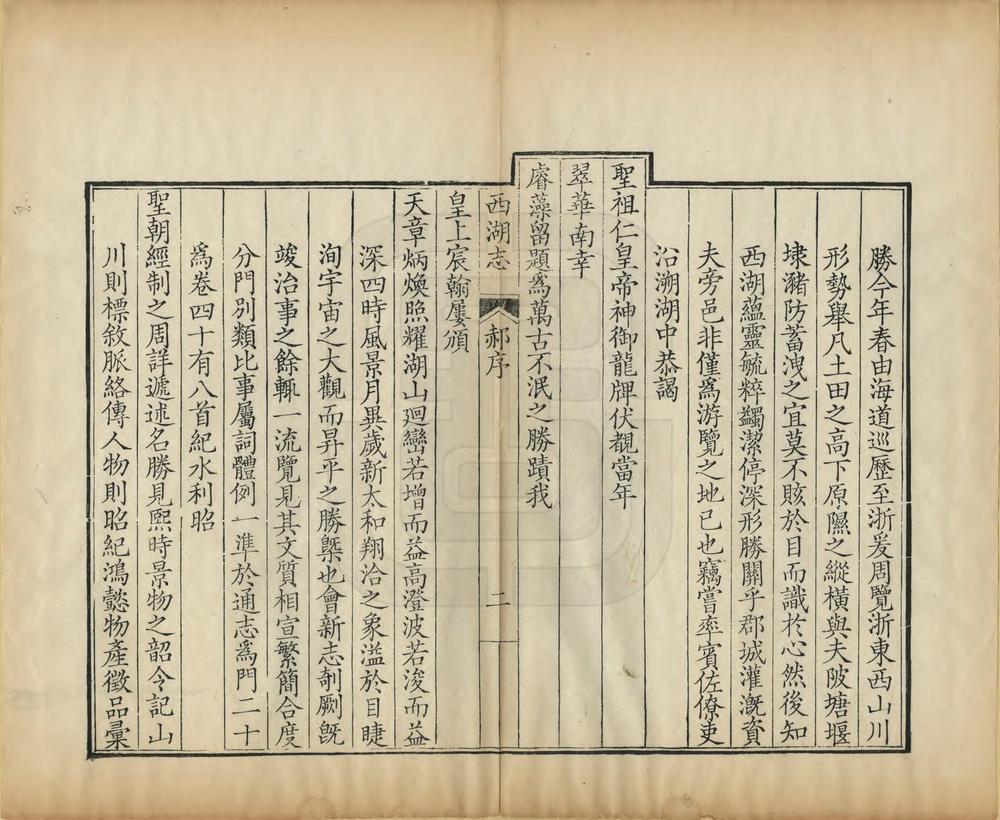 勝今年春由海道巡歷至浙爰周覽浙東西山川
形勢舉凡土田之高下原隰之縱橫與夫陂塘堰
埭瀦防蓄洩之宜莫不賅於目而識於心然後知
西湖蘊靈毓粹蠲潔停深形勝關乎郡城灌漑資
夫旁邑非僅爲游覽之地已也竊嘗率賓佐僚吏
沿溯湖中恭謁
聖祖仁皇帝神御龍牌伏覩當年
翠華南幸
睿藻留題爲萬古不泯之勝蹟我
西湖志 郝序 二
皇上宸翰屢頒
天章炳煥照耀湖山廻巒若增而益高澄波若浚而益
深四時風景月異歲新太和翔洽之象溢於目睫
洵宇宙之大觀而昇平之勝槩也會新志剞劂旣
竣治事之餘輒一流覽見其文質相宣繁簡合度
分門別類比事屬詞體例一準於通志爲門二十
爲卷四十有八首紀水利昭
聖朝經制之周詳遞述名勝見熙時景物之韶令記山
川則標敘脈絡傳人物則昭紀鴻懿物產徵品彙